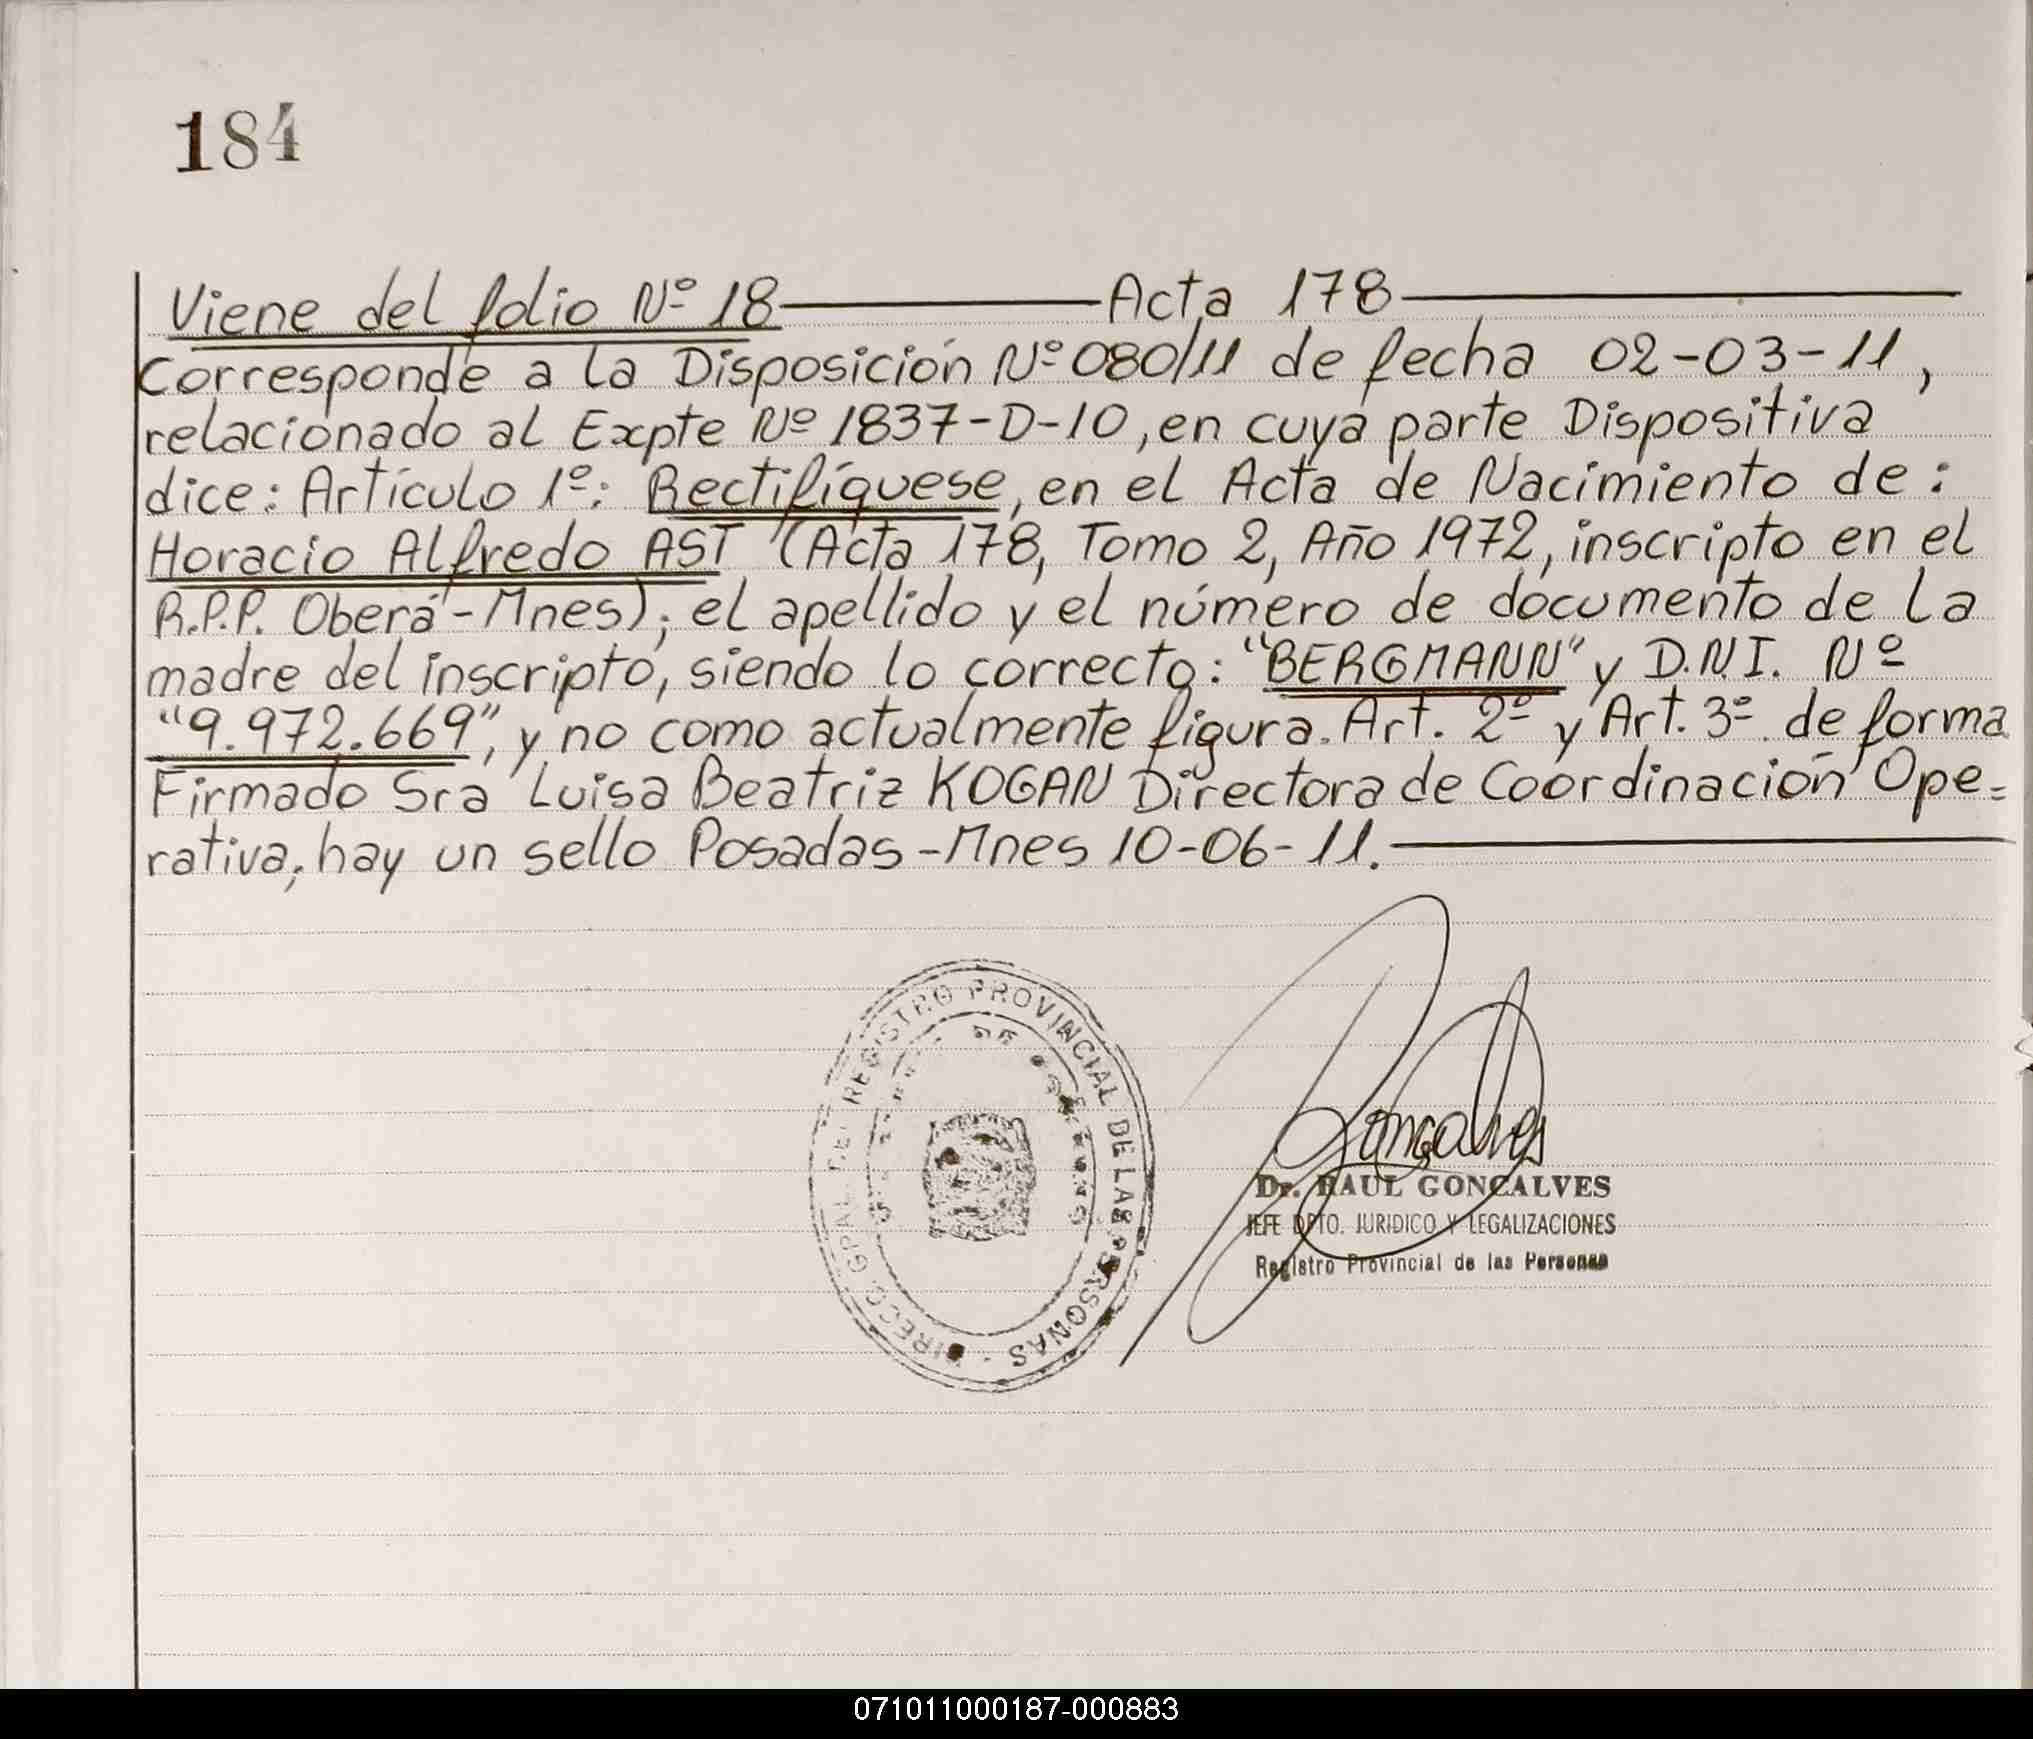 184
Viene del folio Nº 18 Acta 178
Corresponde a la Disposición Nº 080/11 de fecha 02-03-11,
relacionado al Expte Nº 1837-D-10, en cuya parte Dispositiva
dice: Artículo 1º: Rectifíquese, en el Acta de Nacimiento de:
Horacio Alfredo AST (Acta 178, Tomo 2, Año 1972, inscripto en el
R.P.P. Oberá-Mnes); el apellido y el número de documento de la
madre del inscripto, siendo lo correcto: "BERGMANN" y D.N.I. Nº
"9.972.669", y no como actualmente figura. Art. 2º y Art. 3º de forma
Firmado Sra Luisa Beatriz KOGAN Directora de Coordinación Ope=
rativa, hay un sello Posadas-Mnes 10-06-11.
DIRECC. GRAL. DEL REGISTRO PROVINCIAL DE LAS PERSONAS
Goncalves
Dr. RAUL GONCALVES
JEFE DPTO. JURIDICO Y LEGALIZACIONES
Registro Provincial de las Personas
071011000187-000883